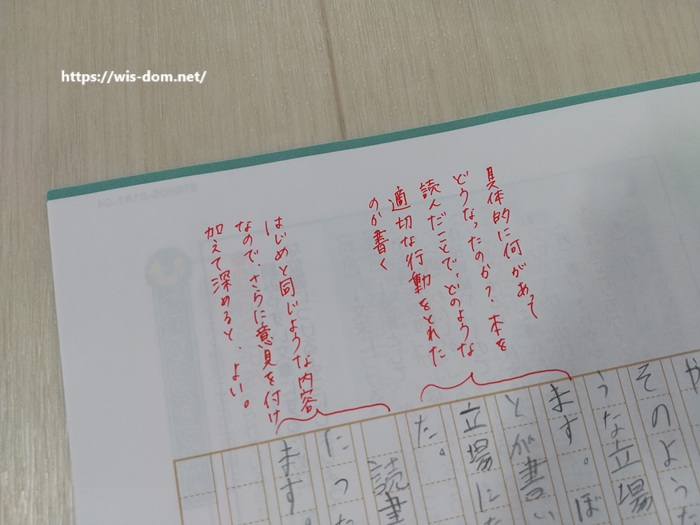 https://wis-dom.net/
具体的に何があって
どうなったのか?本を
読んだことで、どのような
適切な行動をとれた
のか書く
はじめと同じような内容
なので、さらに意見を付け
加えて深めると、よい。
そのような
うな立場
ます。ぼ
とが書い
立場に
た。
読書
たった
ます。